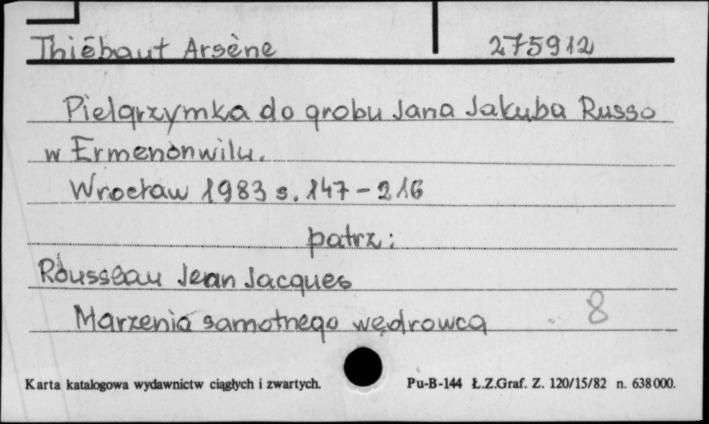 Thiébaut Arsène 275912
Pielgrzymka do grobu Jana Jakuba Russo
w Ermenonwilu.
Wrocław 1983 s. 147-216
patrz:
Rousseau Jean Jacques
Marzenia samotnego wędrowca 8
Karta katalogowa wydawnictw ciągłych i zwartych. Pu-B-144 Ł.Z.Graf. Z. 120/15/82 n. 638000.